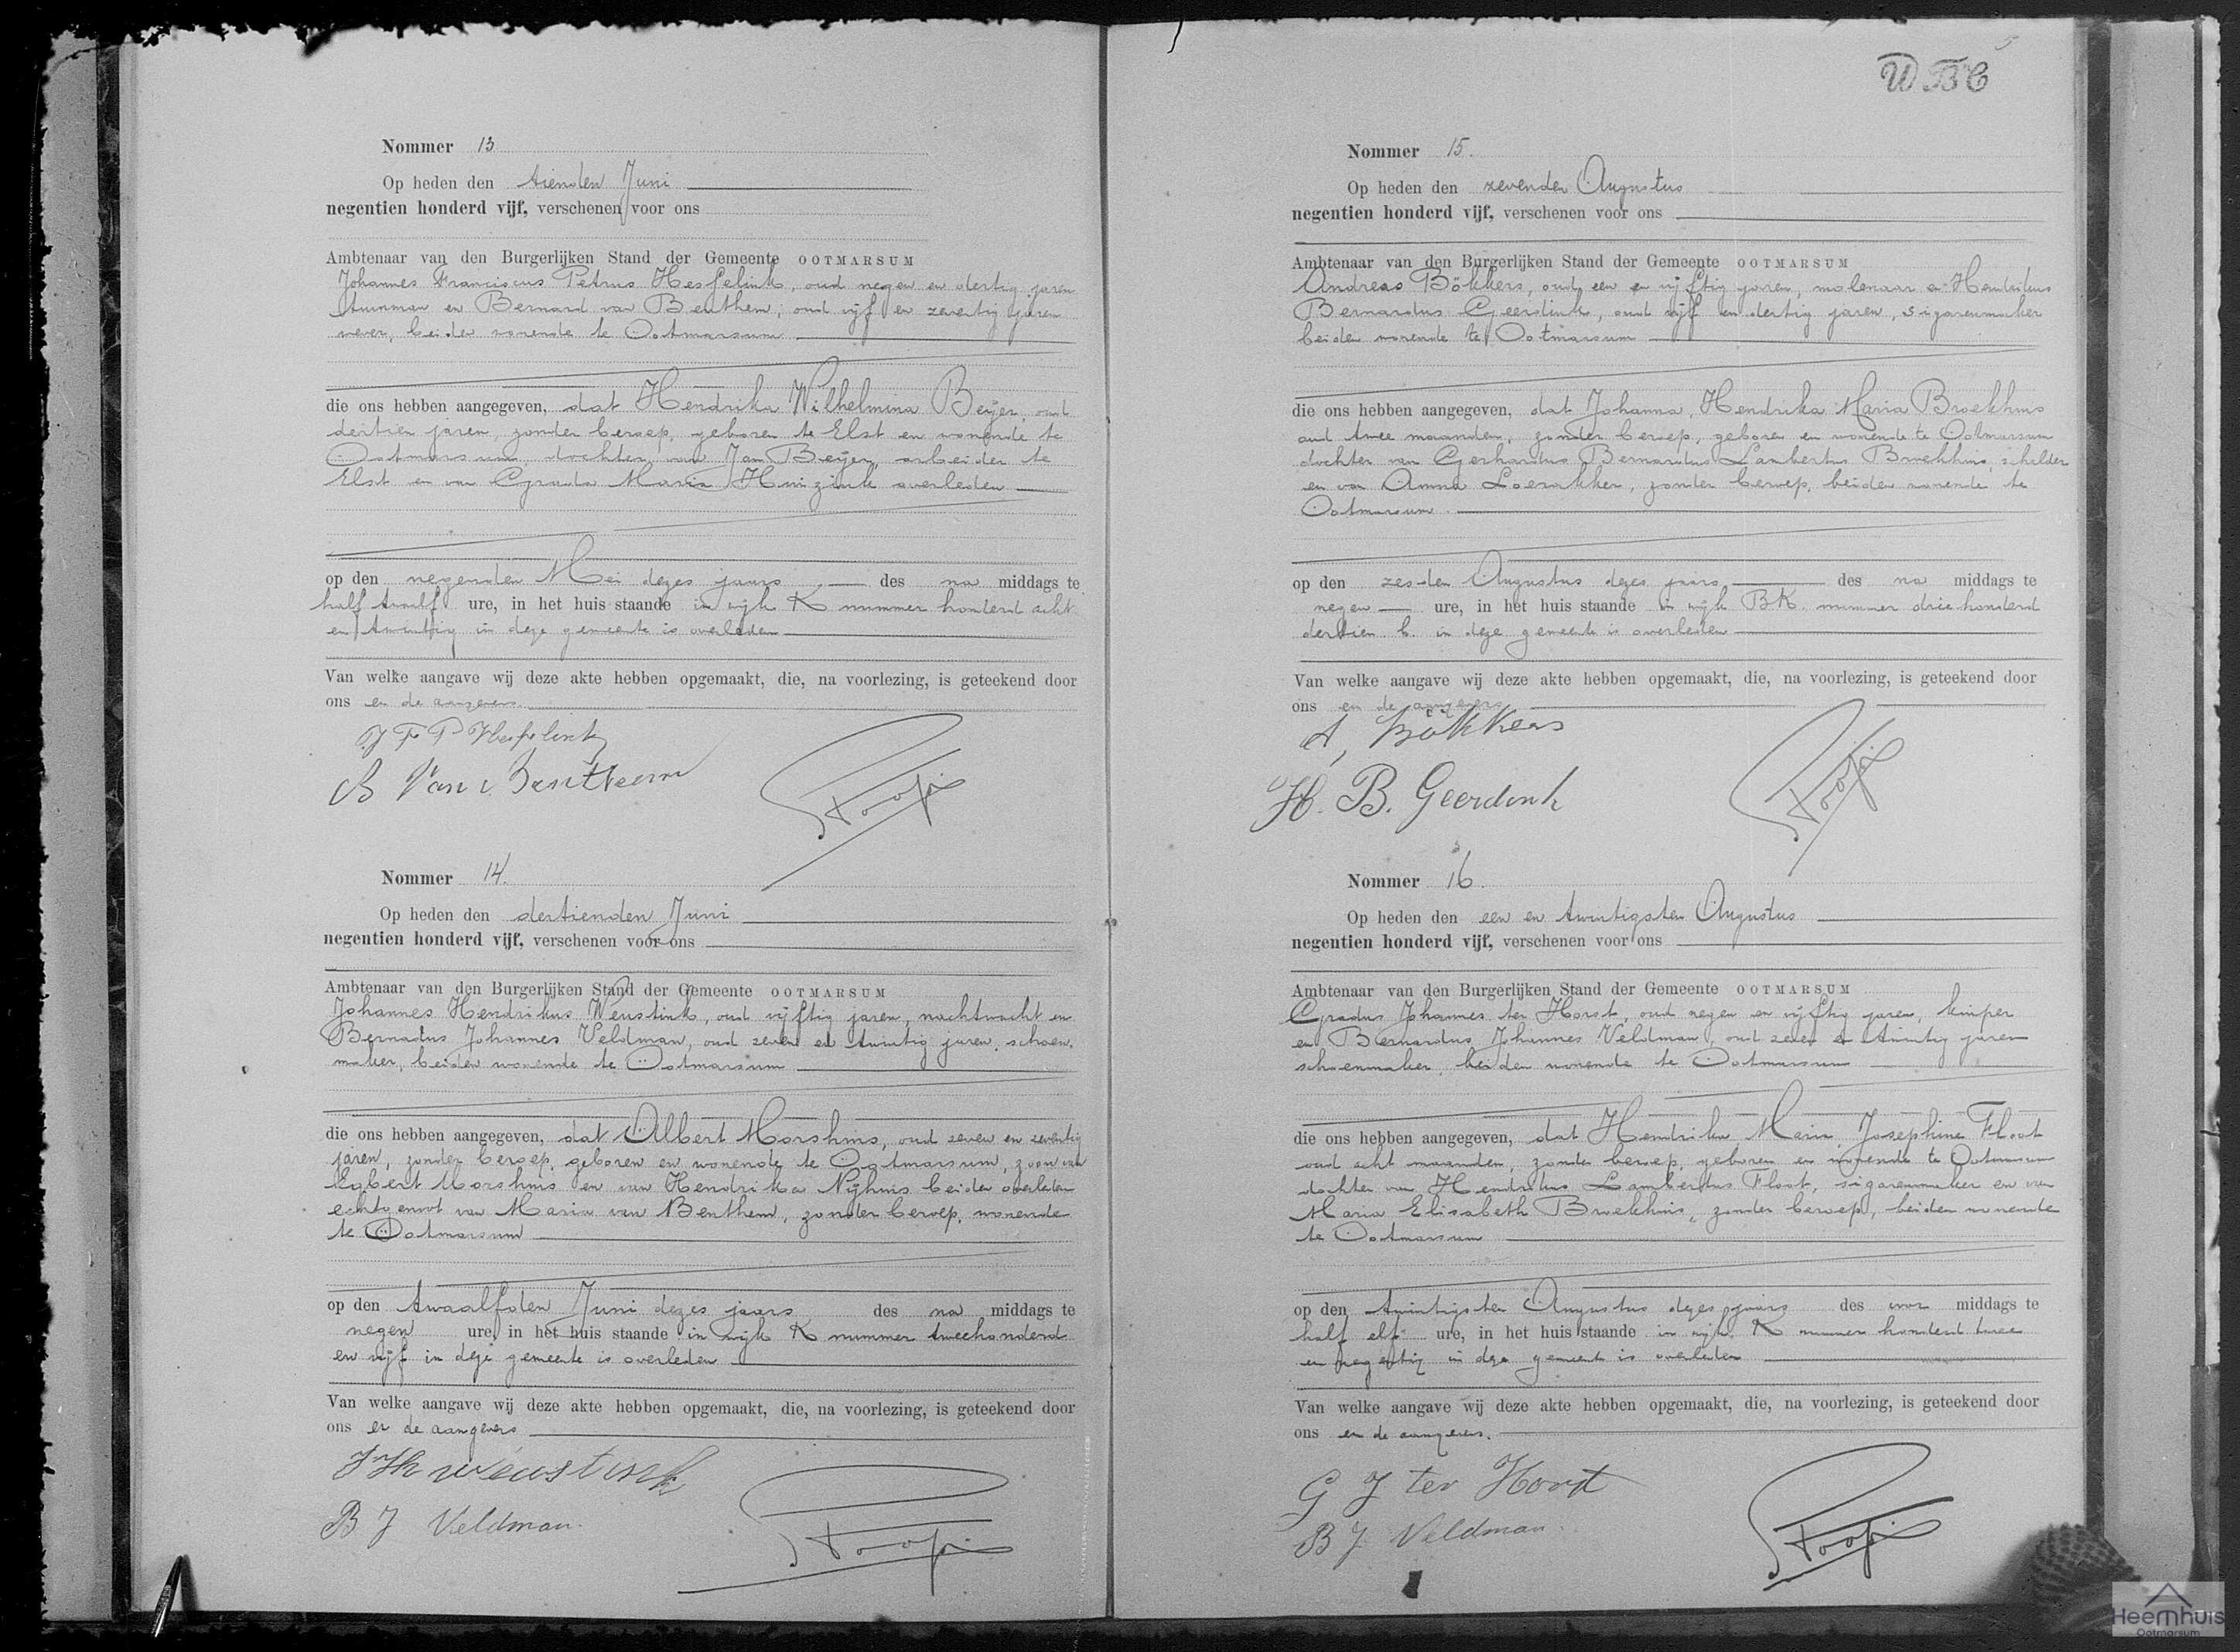 Nommer 13
Op heden den tienden Juni
negentien honderd vijf, verschenen voor ons
Ambtenaar van den Burgerlijken Stand der Gemeente OOTMARSUM
Johannes Franciscus Petrus Hesselink, oud negen en dertig jaren
tuinman en Bernard van Benthem, oud vijf en zeventig jaren
wever, beiden wonende te Ootmarsum
die ons hebben aangegeven, dat Hendrika Wilhelmina Beijer, oud
dertien jaren, zonder beroep, geboren te Elst en wonende te
Ootmarsum, dochter van Jan Beijer, arbeider te
Elst en van Grada Maria Huizink overleden
op den negenden Mei dezes jaars des na middags te
half twaalf ure, in het huis staande in wijk K nummer honderd acht
en twintig in deze gemeente is overleden
Van welke aangave wij deze akte hebben opgemaakt, die, na voorlezing, is geteekend door
ons en de aangevers
J F P Hesselink
B Van Benthem
Nommer 14.
Op heden den dertienden Juni
negentien honderd vijf, verschenen voor ons
Ambtenaar van den Burgerlijken Stand der Gemeente OOTMARSUM
Johannes Hendrikus Weustink, oud vijftig jaren, nachtwacht en
Bernadus Johannes Veldman, oud zeven en twintig jaren, schoen,
maker, beiden wonende te Ootmarsum
die ons hebben aangegeven, dat Albert Morshuis, oud zeven en zeventig
jaren, zonder beroep, geboren en wonende te Ootmarsum, zoon van
Egbert Morshuis en van Hendrika Nijhuis beiden overleden
echtgenoot van Maria van Benthem, zonder beroep, wonende
te Ootmarsum
op den twaalfden Juni dezes jaars des na middags te
negen ure, in het huis staande in wijk K nummer tweehonderd
en vijf in deze gemeente is overleden
Van welke aangave wij deze akte hebben opgemaakt, die, na voorlezing, is geteekend door
ons en de aangevers
J H Weustink
B J Veldman.
W B C
5
Nommer 15.
Op heden den zevenden Augustus
negentien honderd vijf, verschenen voor ons
Ambtenaar van den Burgerlijken Stand der Gemeente OOTMARSUM
Andreas Bökkers, oud een en vijftig jaren, molenaar en Hendrikus
Bernardus Geerdink, oud vijf en dertig jaren, sigarenmaker
beiden wonende te Ootmarsum
die ons hebben aangegeven, dat Johanna, Hendrika Maria Broekhuis
oud twee maanden, zonder beroep, geboren en wonende te Ootmarsum
dochter van Gerhardus Bernardus Lambertus Broekhuis, schilder
en van Anna Loerakker, zonder beroep, beiden wonende te
Ootmarsum.
op den zesden Augustus dezes jaars des na middags te
negen ure, in het huis staande in wijk BK. nummer drie honderd
dertien b. in deze gemeente is overleden
Van welke aangave wij deze akte hebben opgemaakt, die, na voorlezing, is geteekend door
ons en de aangevers
A, Bökkers
H. B. Geerdink
Nommer 16.
Op heden den een en twintigsten Augustus
negentien honderd vijf, verschenen voor ons
Ambtenaar van den Burgerlijken Stand der Gemeente OOTMARSUM
Gradus Johannes ter Horst, oud negen en vijftig jaren, kuiper
en Bernardus Johannes Veldman, oud zeven en twintig jaren
schoenmaker, beiden wonende te Ootmarsum
die ons hebben aangegeven, dat Hendrika Maria Josephine Floot
oud acht maanden, zonder beroep, geboren en wonende te Ootmarsum
dochter van Hendrikus Lambertus Floot, sigarenmaker en van
Maria Elisabeth Broekhuis, zonder beroep, beiden wonende
te Ootmarsum
op den twintigsten Augustus dezes jaars des voor middags te
half elf ure, in het huis staande in wijk K nummer honderd twee
en negentig in deze gemeente is overleden
Van welke aangave wij deze akte hebben opgemaakt, die, na voorlezing, is geteekend door
ons en de aangevers.
G J ter Horst
B J Veldman.
Heemhuis
Ootmarsum